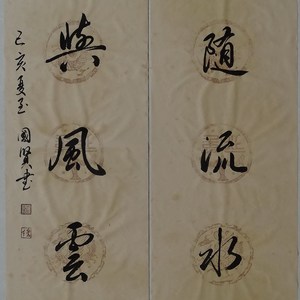 随流水
與風雲
己亥夏至
國賢書